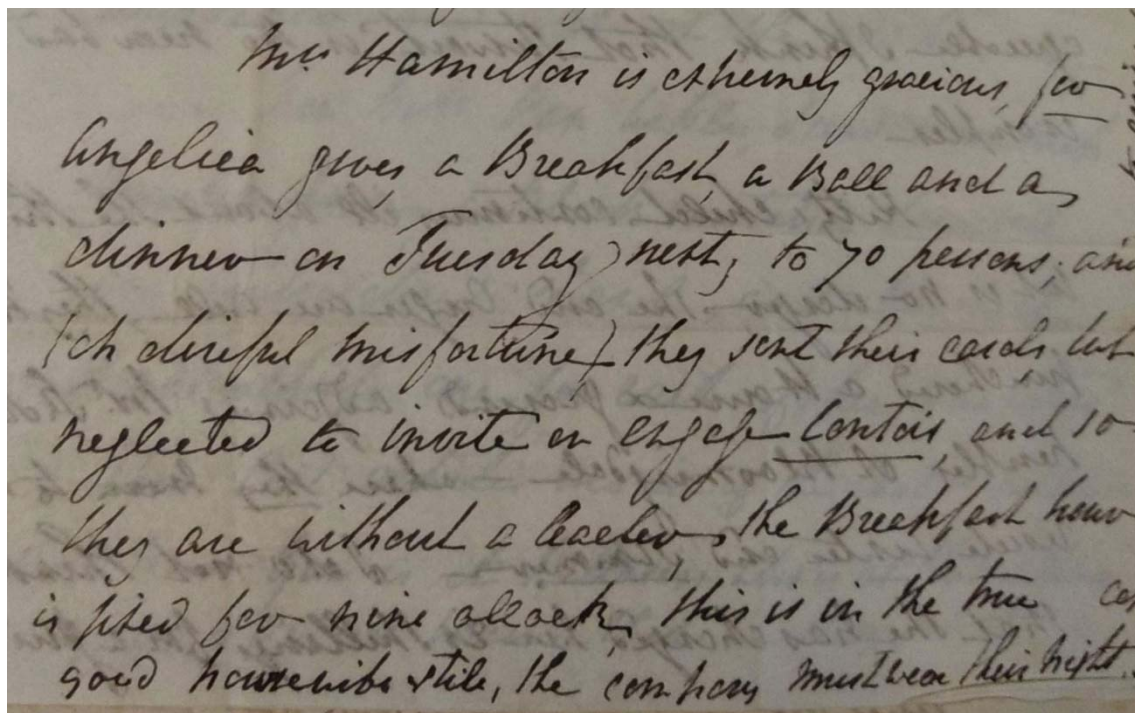 Mrs Hamilton is extremely gracious, for
Angelica gives a Breakfast, a Ball and a
dinner on Tuesday next, to 70 persons, and
(oh direful misfortune) they sent their cards but
neglected to invite or engage Contois, and so
they are without a leader, the Breakfast hour
is fixed for nine oClock, this is in the true
good housewife stile, the company must wear their night